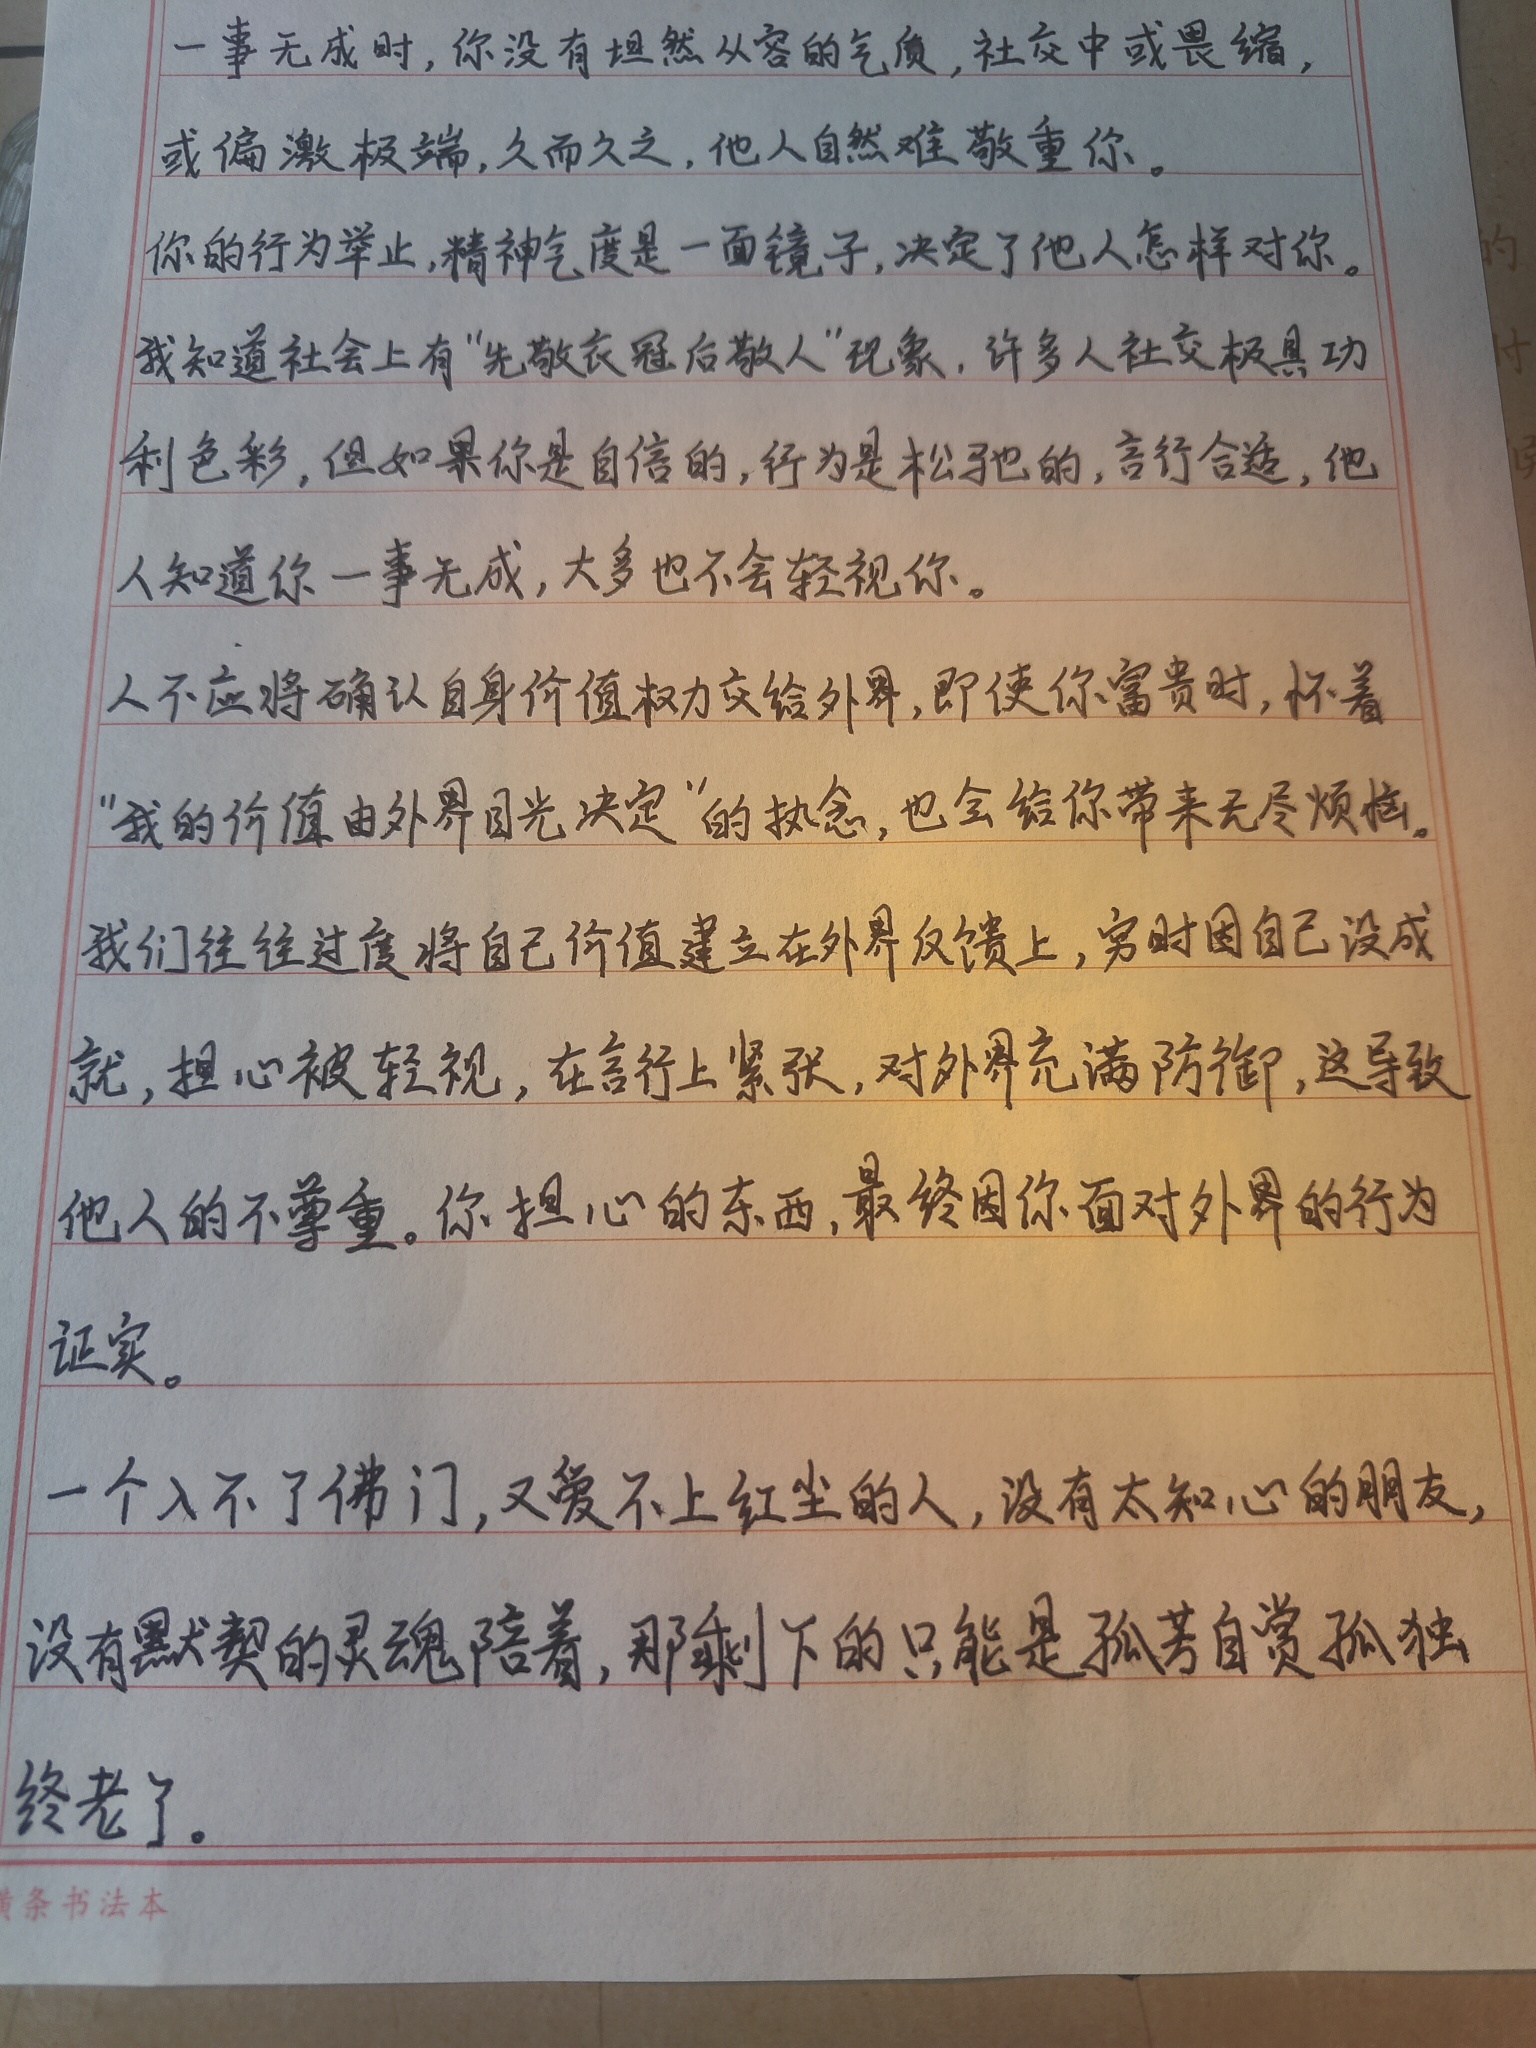 一事无成时，你没有坦然从容的气质，社交中或畏缩，
或偏激极端，久而久之，他人自然难敬重你。
你的行为举止，精神气度是一面镜子，决定了他人怎样对你。
我知道社会上有“先敬衣冠后敬人”现象，许多人社交极具功
利色彩，但如果你是自信的，行为是松弛的，言行合适，他
人知道你一事无成，大多也不会轻视你。
人不应将确认自身价值权力交给外界，即使你富贵时，怀着
“我的价值由外界目光决定”的执念，也会给你带来无尽烦恼。
我们往往过度将自己价值建立在外界反馈上，穷时因自己没成
就，担心被轻视，在言行上紧张，对外界充满防御，这导致
他人的不尊重。你担心的东西，最终因你面对外界的行为
证实。
一个入不了佛门，又爱不上红尘的人，没有太知心的朋友，
没有默契的灵魂陪着，那剩下的只能是孤芳自赏孤独
终老了。
横条书法本
的
对